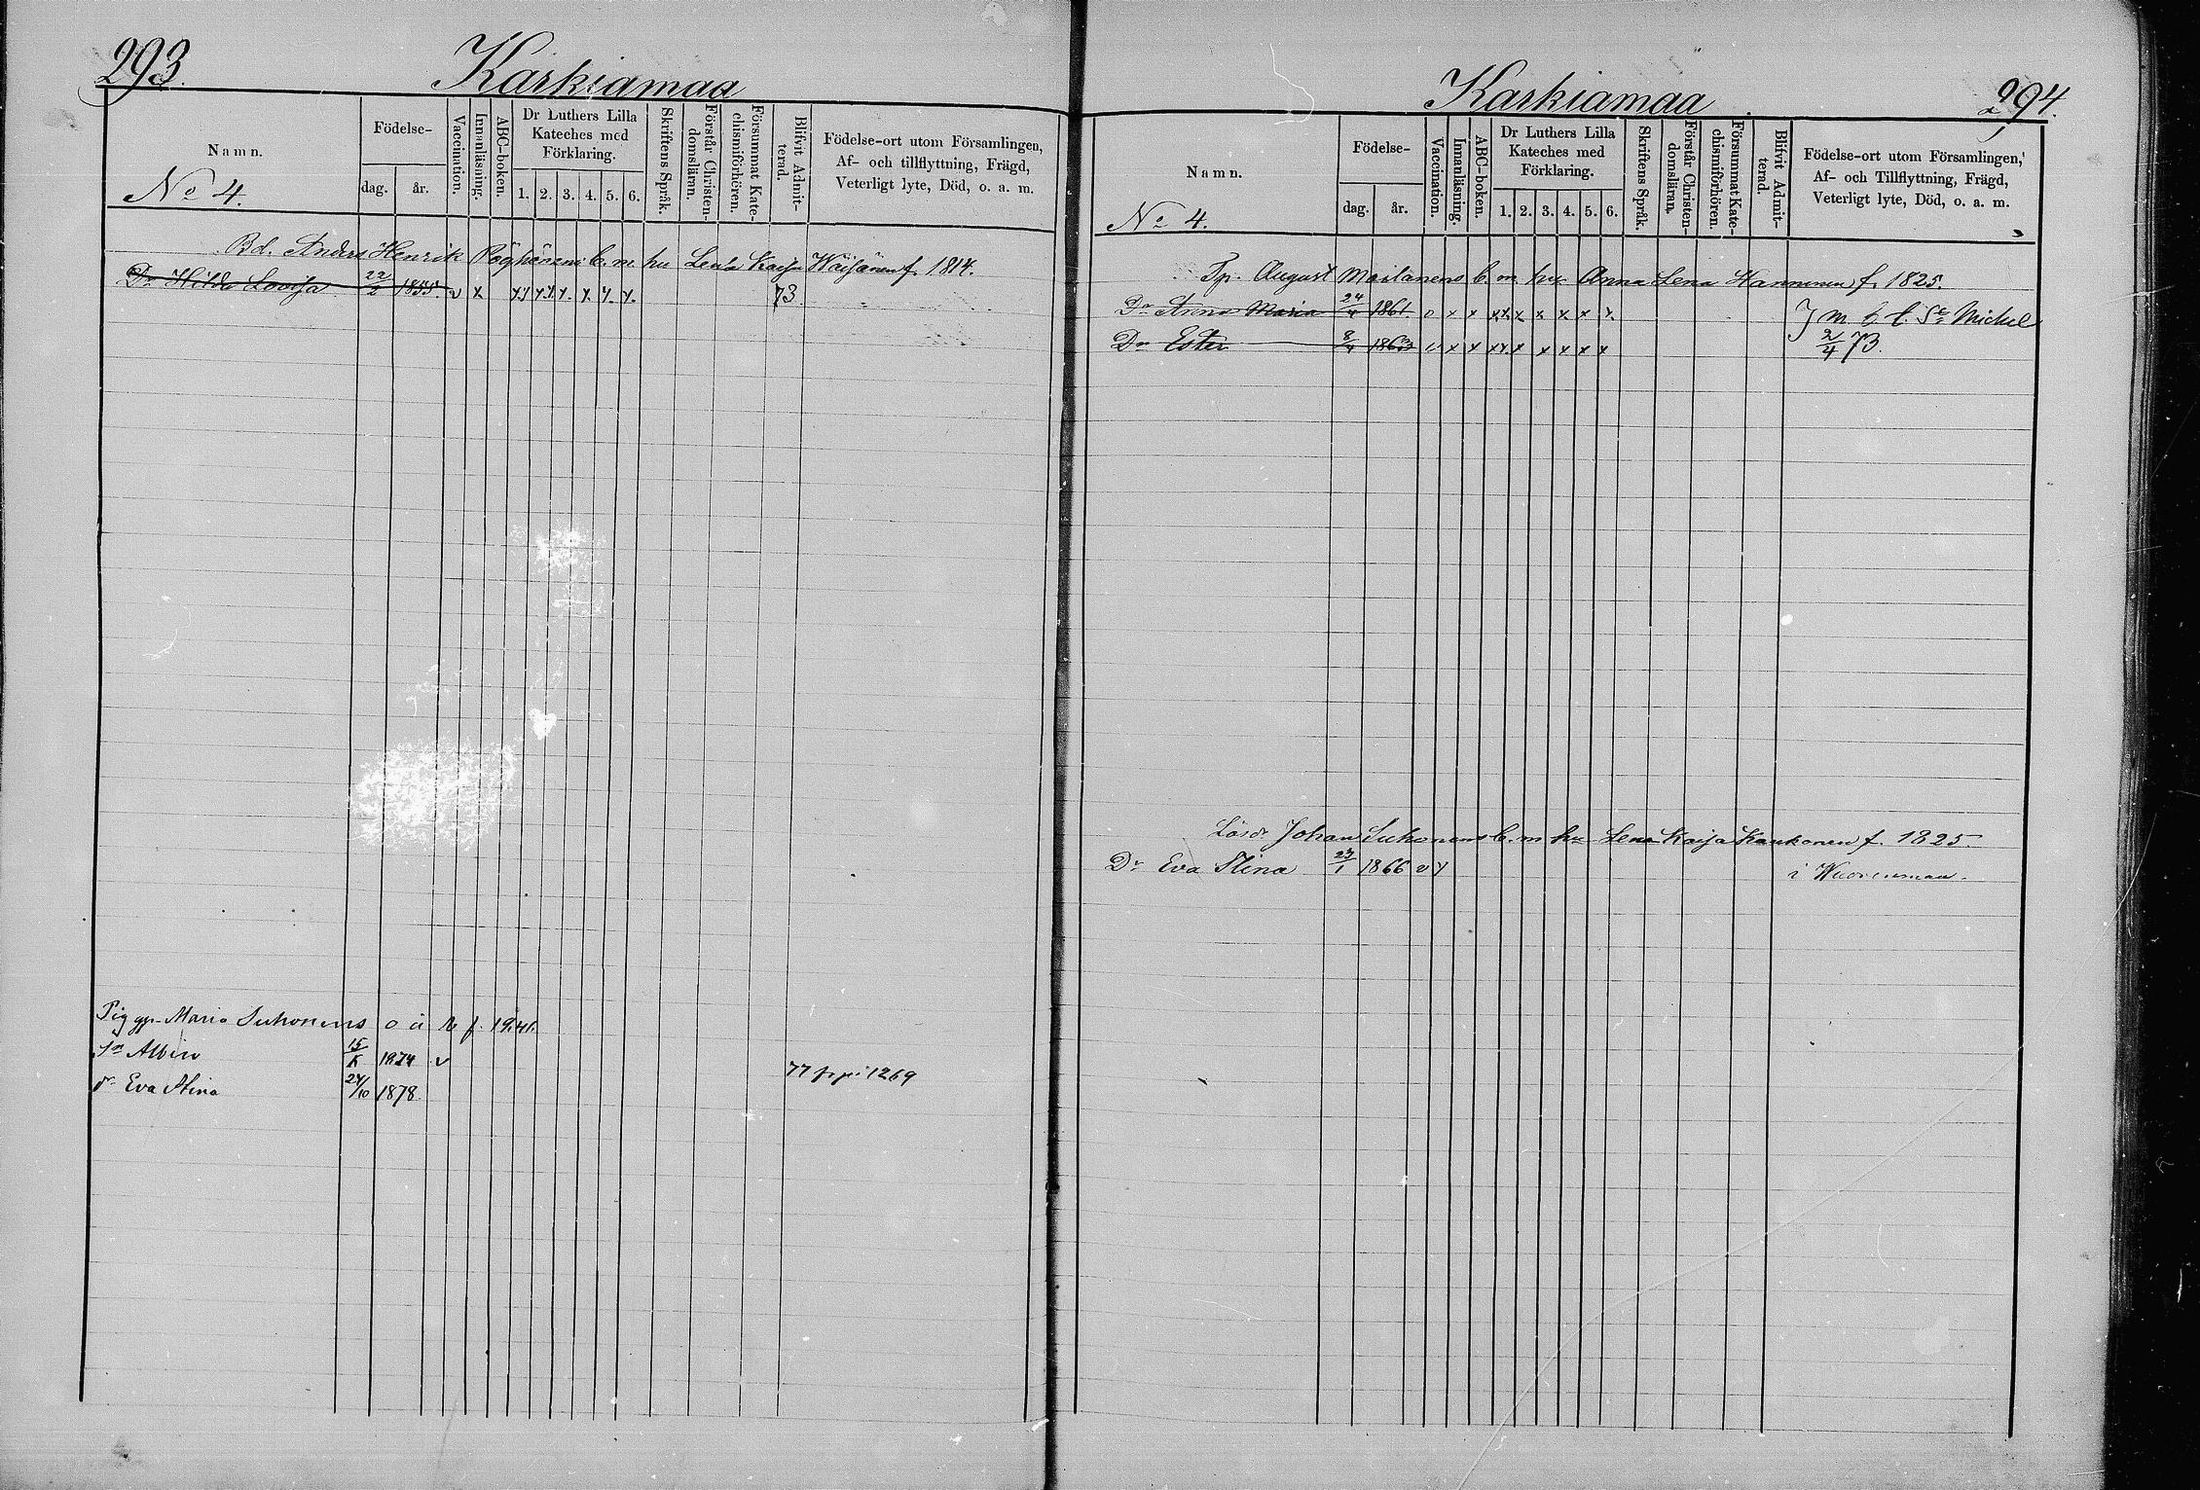 293.
Karkiamaa
Namn.
Födelse-
dag.
år.
Vaccination.
Innanläsning.
ABC-boken.
Dr Luthers Lilla
Kateches med
Förklaring.
1. 2. 3. 4. 5. 6.
Skriftens Språk.
Förstår Christen-
domsläran.
Försummat Kate-
chismiförhören.
Blifvit Admit-
terad.
Födelse-ort utom Församlingen,
Af- och tillflyttning, Frägd,
Veterligt lyte, Död, o. a. m.
No 4.
Bd. Anders Henrik b. m. hu Lena Kaisa Wäisänen f. 1814.
Dr Hilda Lovisa 22/2 1855. v x x x x x x x x. 73
Piggp. Maria Suhonens o ä b f.
Sn Albin 15/ 1874 v
dr Eva Stina 24/10 1878.
77 1269
Karkiamaa
294.
Namn.
Födelse-
dag.
år.
Vaccination.
Innanläsning.
ABC-boken.
Dr Luthers Lilla
Kateches med
Förklaring.
1. 2. 3. 4. 5. 6.
Skriftens Språk.
Förstår Christen-
domsläran.
Försummat Kate-
chismiförhören.
Blifvit Admit-
terad.
Födelse-ort utom Församlingen,
Af- och Tillflyttning, Frägd,
Veterligt lyte, Död, o. a. m.
No 4.
Tp. August Moilanens b. m. hu Anna Lena Hanninen f. 1825.
Dr Anna Maria 24/4 1861. v x x x x x x x x x m b t. St Michel
Dr Ester 8/4 1863 v x x x x x x x x x 2/4 73.
Lösdr Johan Suhonens b. m hu Lena Kaisa Kaukonen f. 1825.
Dr Eva Stina 27/1 1866 v y i Wuorenmaa.